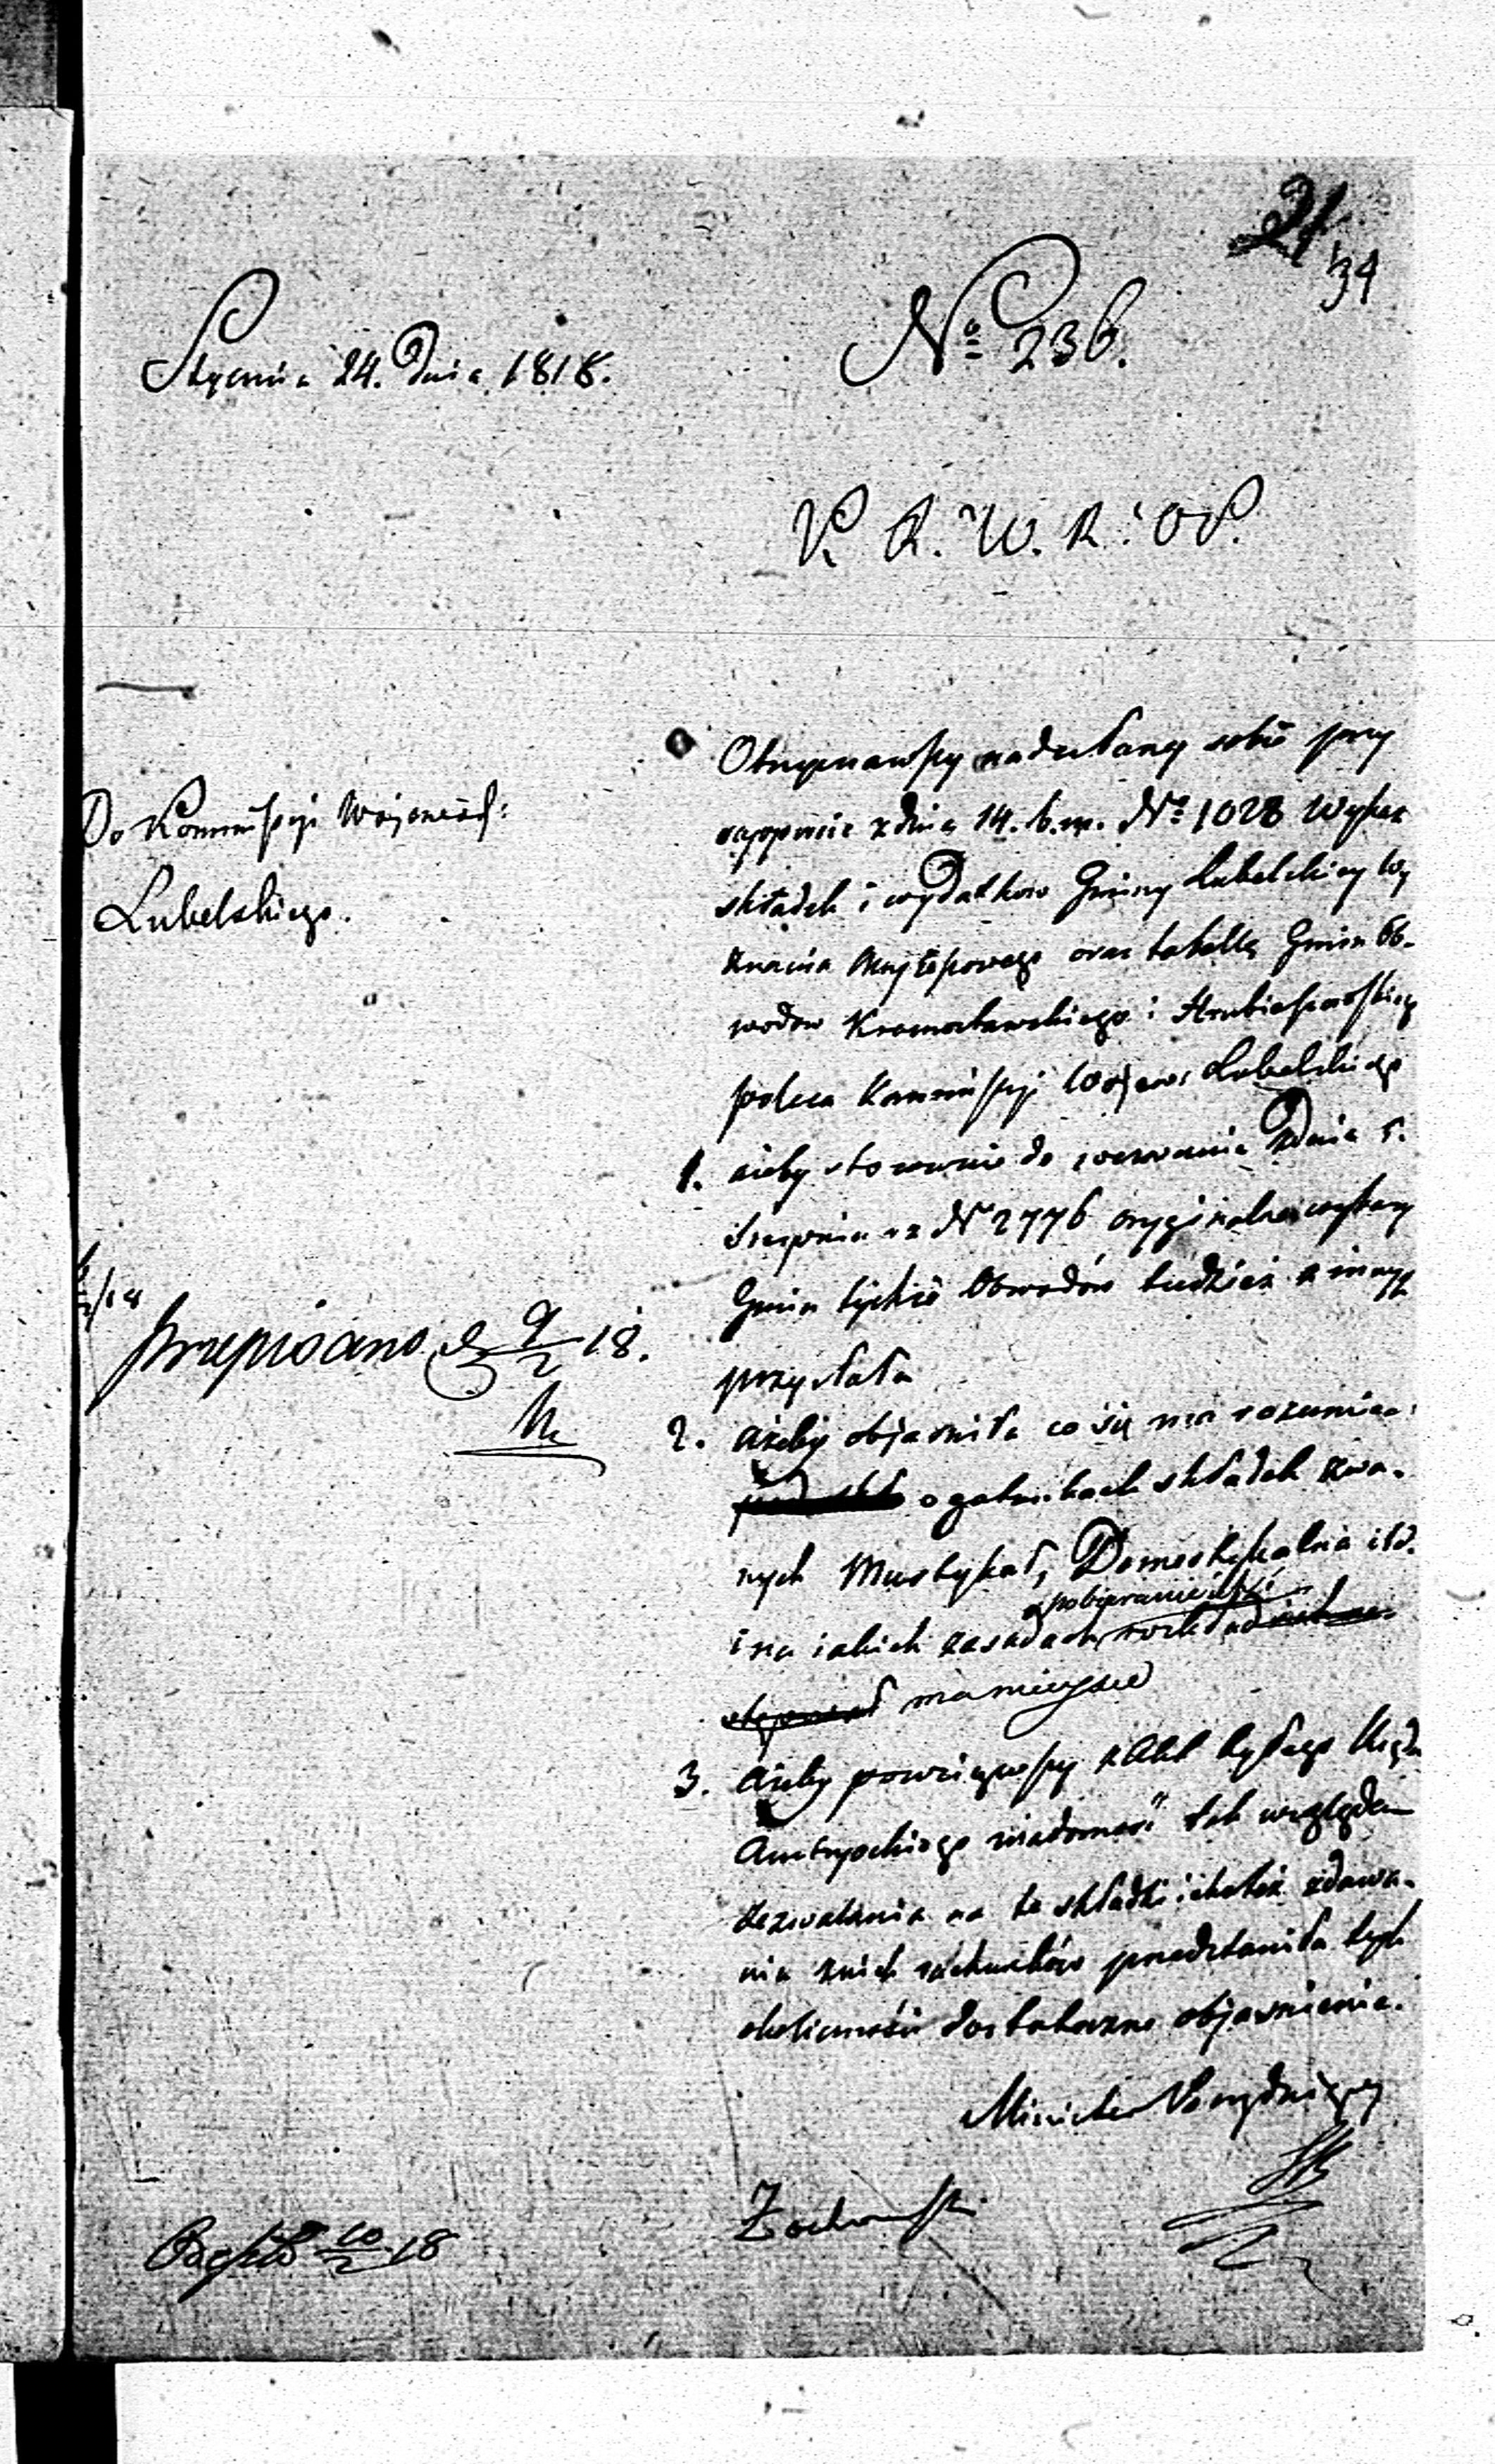 21
34
Stycznia 24. Dnia 1818.
No 236.
K. R. W. R. : O P.
Do Kommissyi Wojewódz:
Lubelskiego.
Otrzymawszy nadesłany sobie przy
rapporcie z dnia 14. b. m. No 1028 Wykaz
składek i wydatków Gminy Lubelskiey Wy
znania Moyżeszowego oraz tabellę Gmin Ob-
wodów Krasnostawskiego i Hrubieszowskiego
poleca Kommissyi Wojew: Lubelskiego
1. ażeby stosownie do wezwania z dnia 5.
Sierpnia No 2776 oryginalne wykazy
Gmin tychże Obwodów tudzież z innych
przysłała
2. ażeby objaśniła co się ma rozumieć
o gatunkach składek zwa-
nych Domestykalna itd.
pobieranie
i na iakich zasadach rozkład
ma mieysce
3. ażeby powziąwszy z Akt byłego Rządu
Austryackiego wiadomość tak względem
zezwalania na te składki iako też zdawa-
nia z nich rachunków przedstawiła tych
okoliczności dostateczne objaśnienie.
Minister Prezydujący
Żochowski
Przepisano d. 9/2 18.
Exped 10/2 18